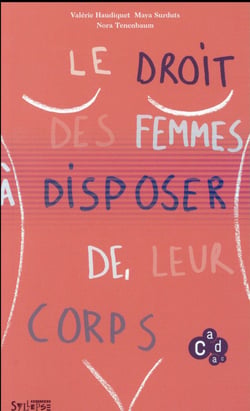 Valérie Haudiquet Maya Surduts
Nora Tenenbaum
LE DROIT
DES FEMMES
À DISPOSER
DE LEUR
CORPS
Cadac
SYLLEPSE